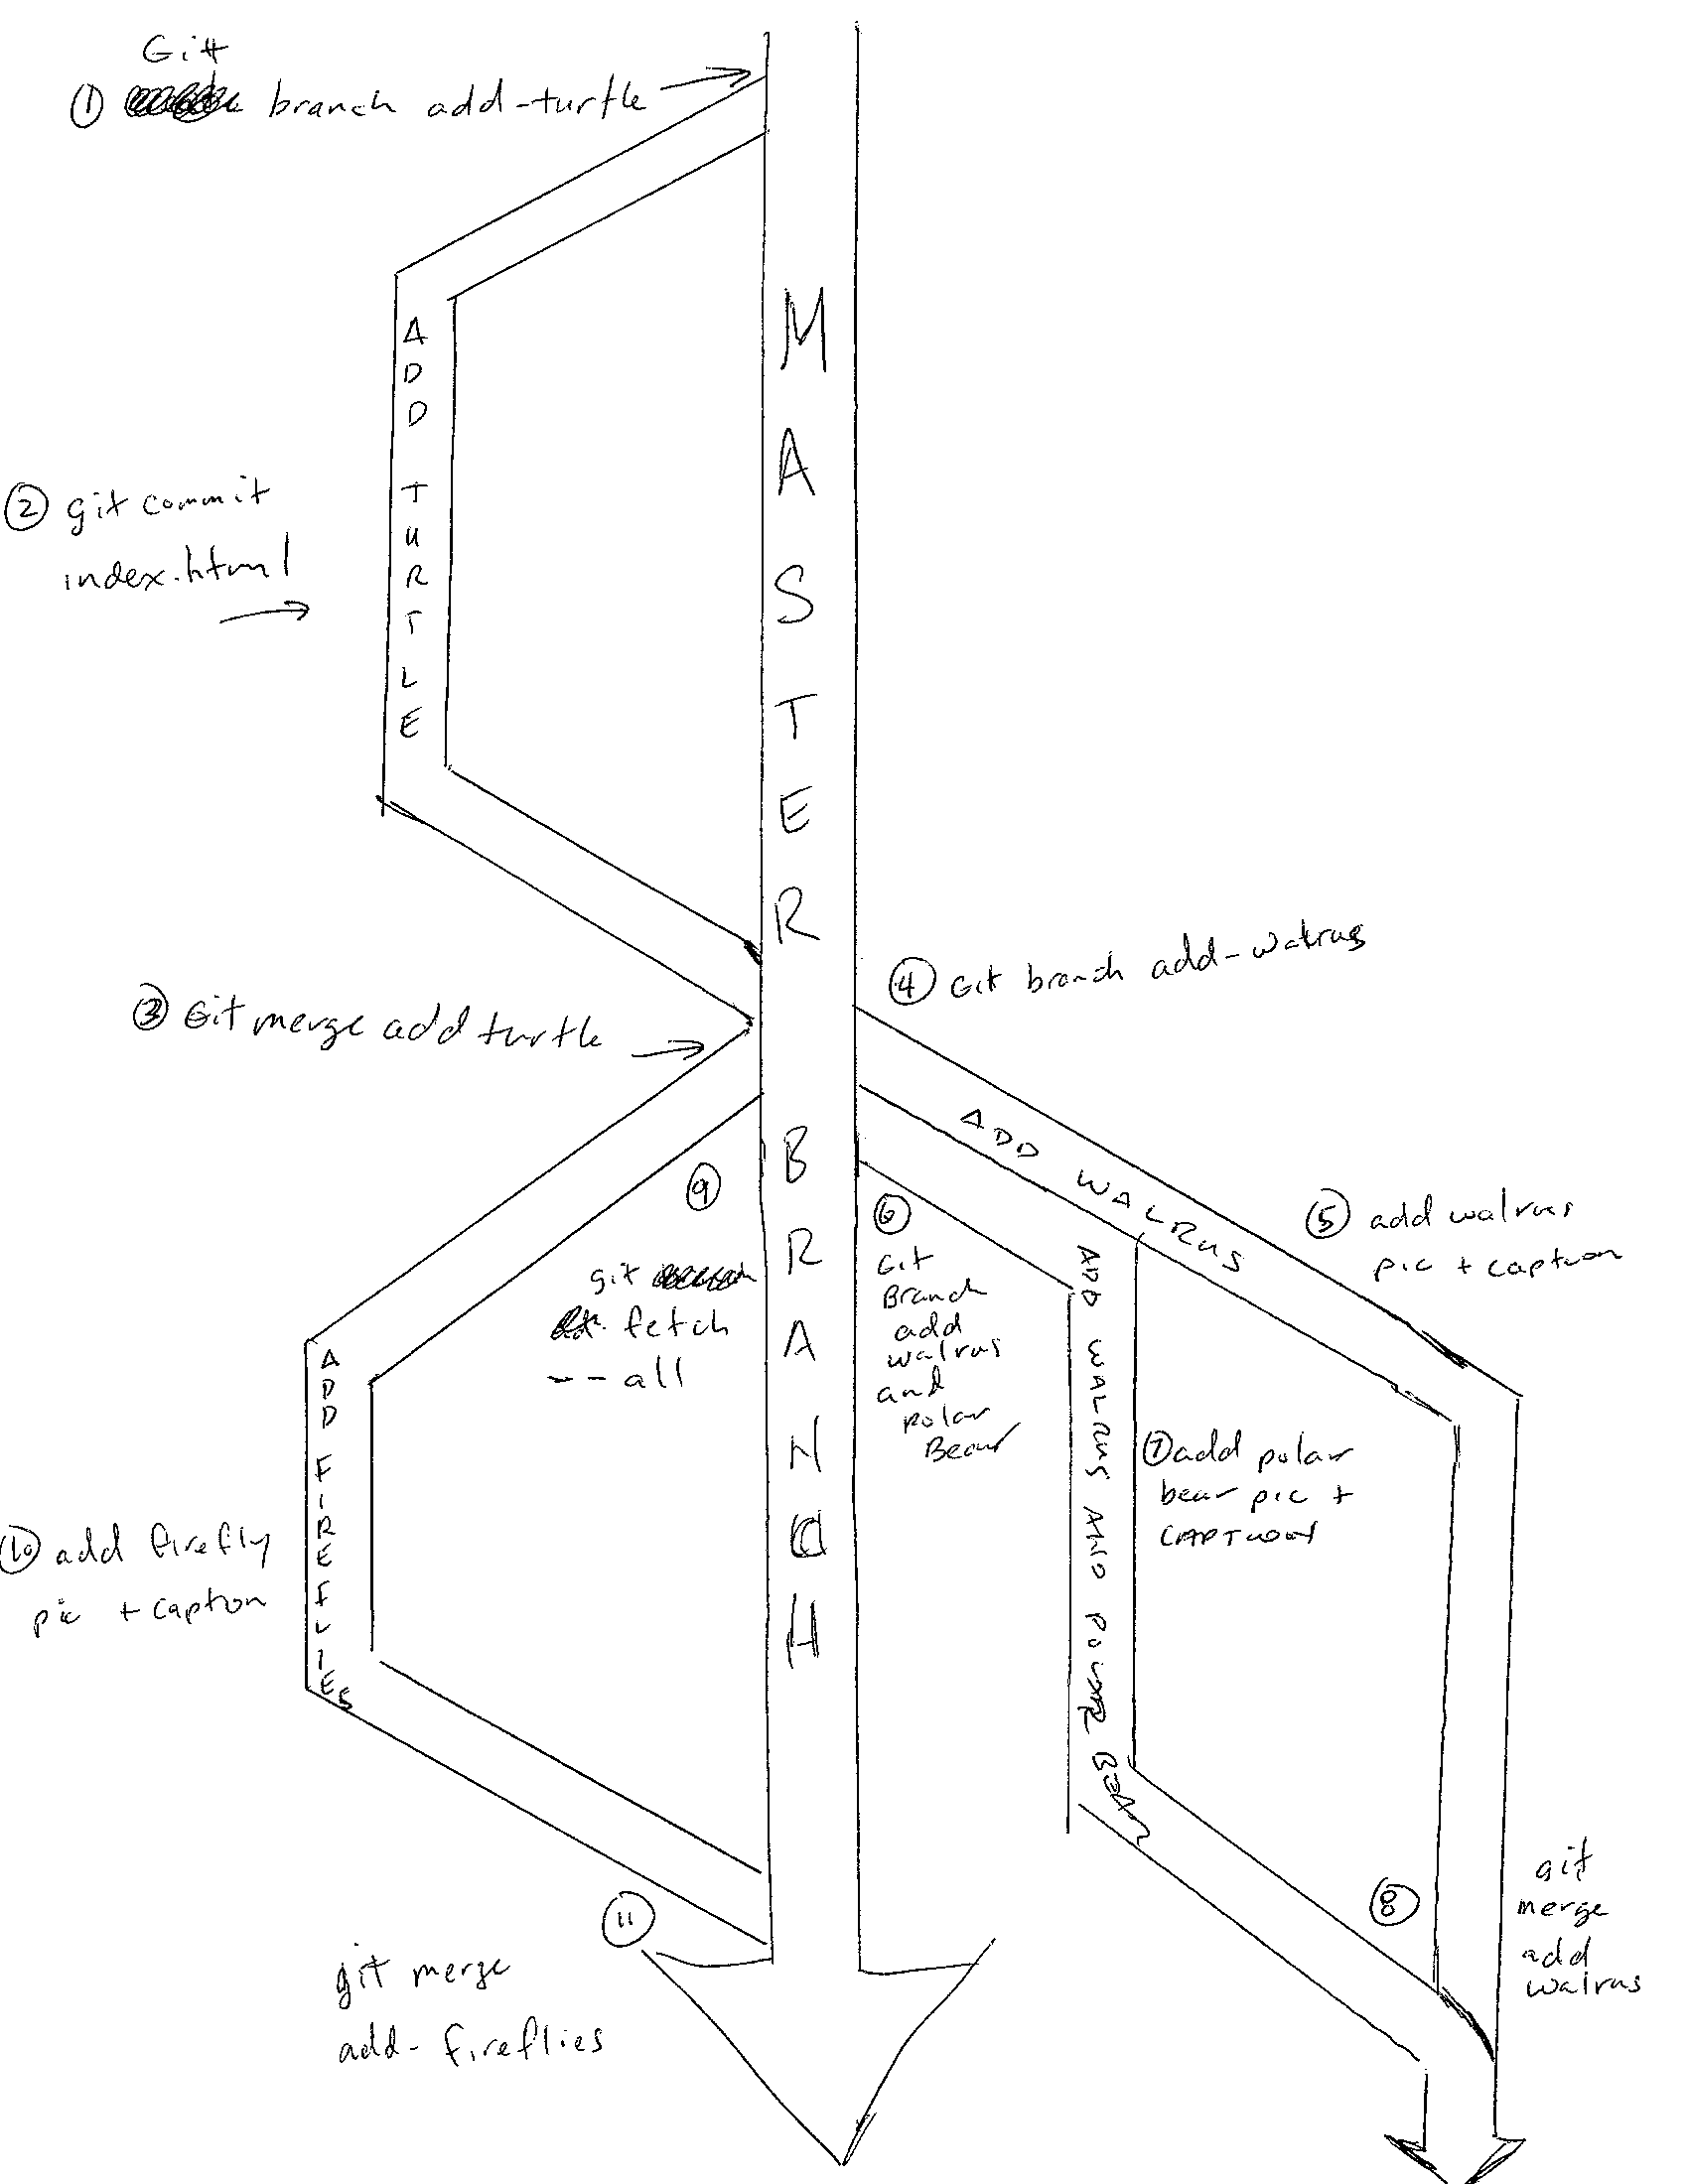 Git
① branch add-turtle
ADD TURTLE
② git commit
index.html
MASTER BRANCH
③ Git merge add turtle
④ Git branch add-walrus
ADD WALRUS
⑤ add walrus
pic + caption
⑥
Git
Branch
add
walrus
and
polar
Bear
ADD WALRUS AND POLAR BEAR
⑦ add polar
bear pic +
CAPTION
⑧
git
merge
add
walrus
⑨
git
fetch
--all
ADD FIREFLIES
⑩ add firefly
pic + caption
⑪
git merge
add-fireflies